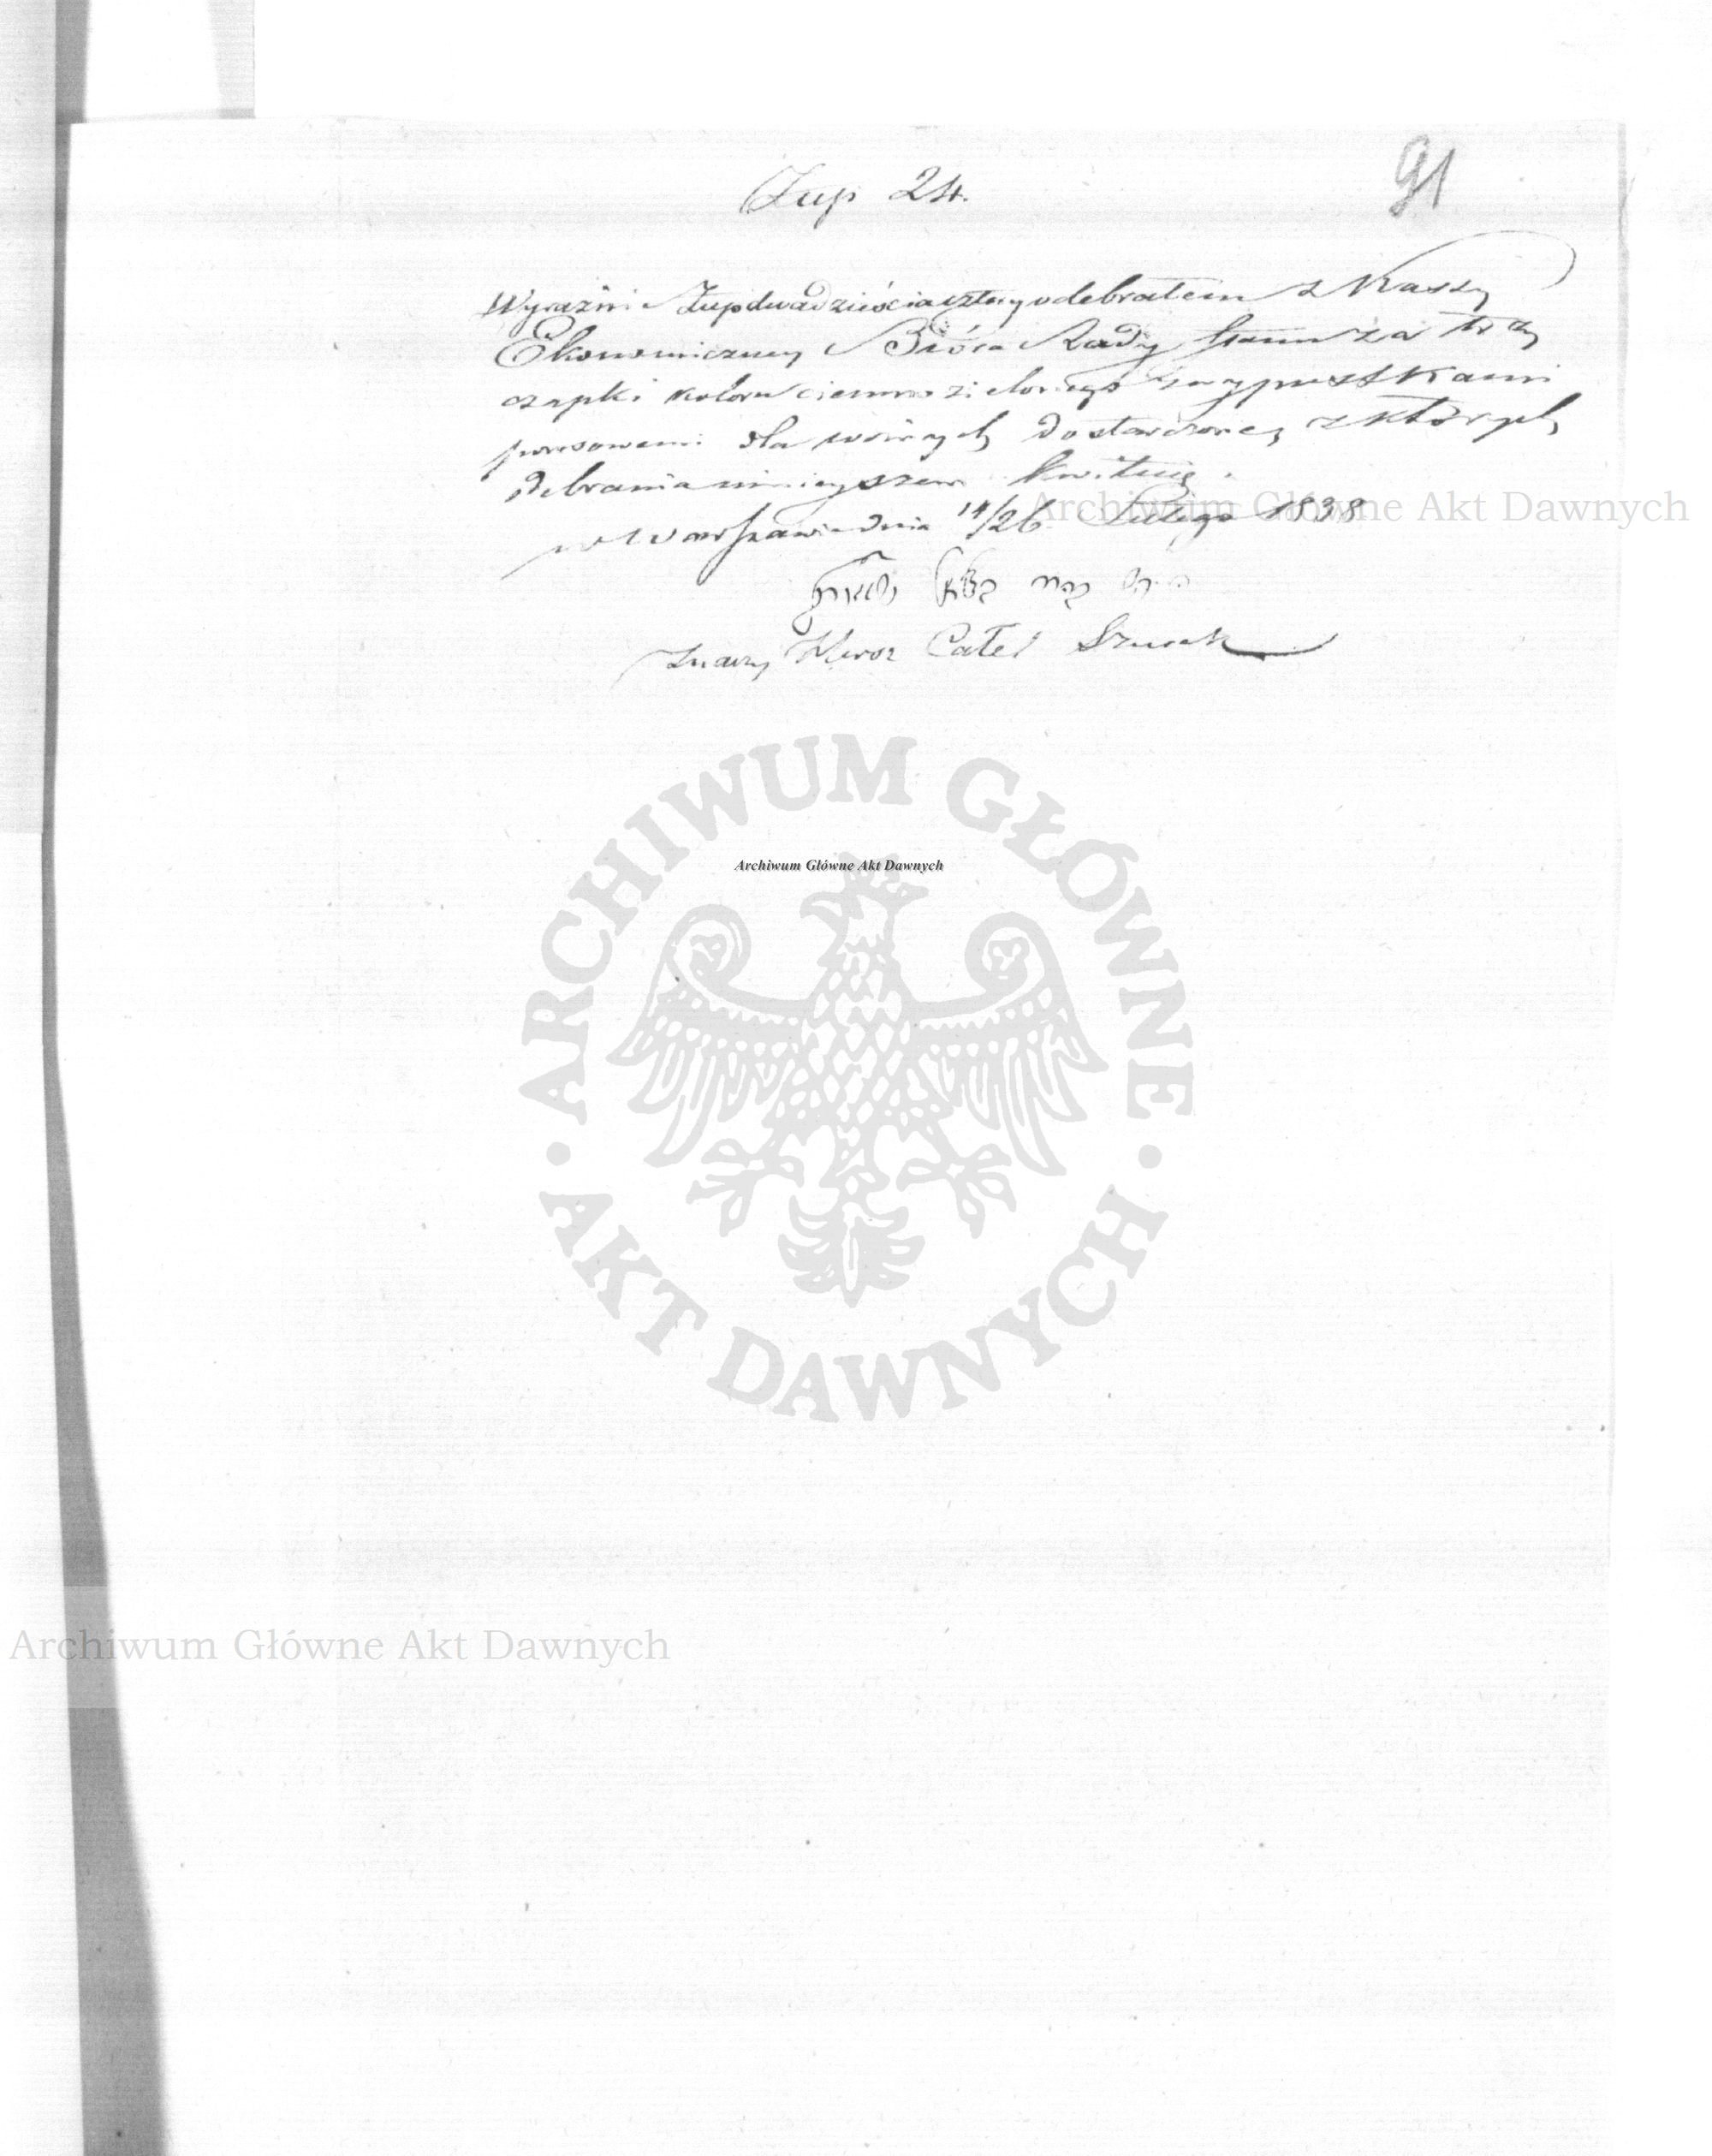 91
Zup 24.
Wyraźnie Zup dwadzieścia cztery odebrałem z Kassy
Ekonomiczney Bióra Rady Stanu za trzy
czapki koloru ciemno zielonego z wypustkami
ponsowemi dla woźnych dostarczone, z których
odebrania niniejszem kwituię.
w Warszawie dnia 14/26 Lutego 1838
Znaczy Hersz Całel
Archiwum Główne Akt Dawnych
ARCHIWUM GŁÓWNE
Archiwum Główne Akt Dawnych
AKT DAWNYCH
Archiwum Główne Akt Dawnych